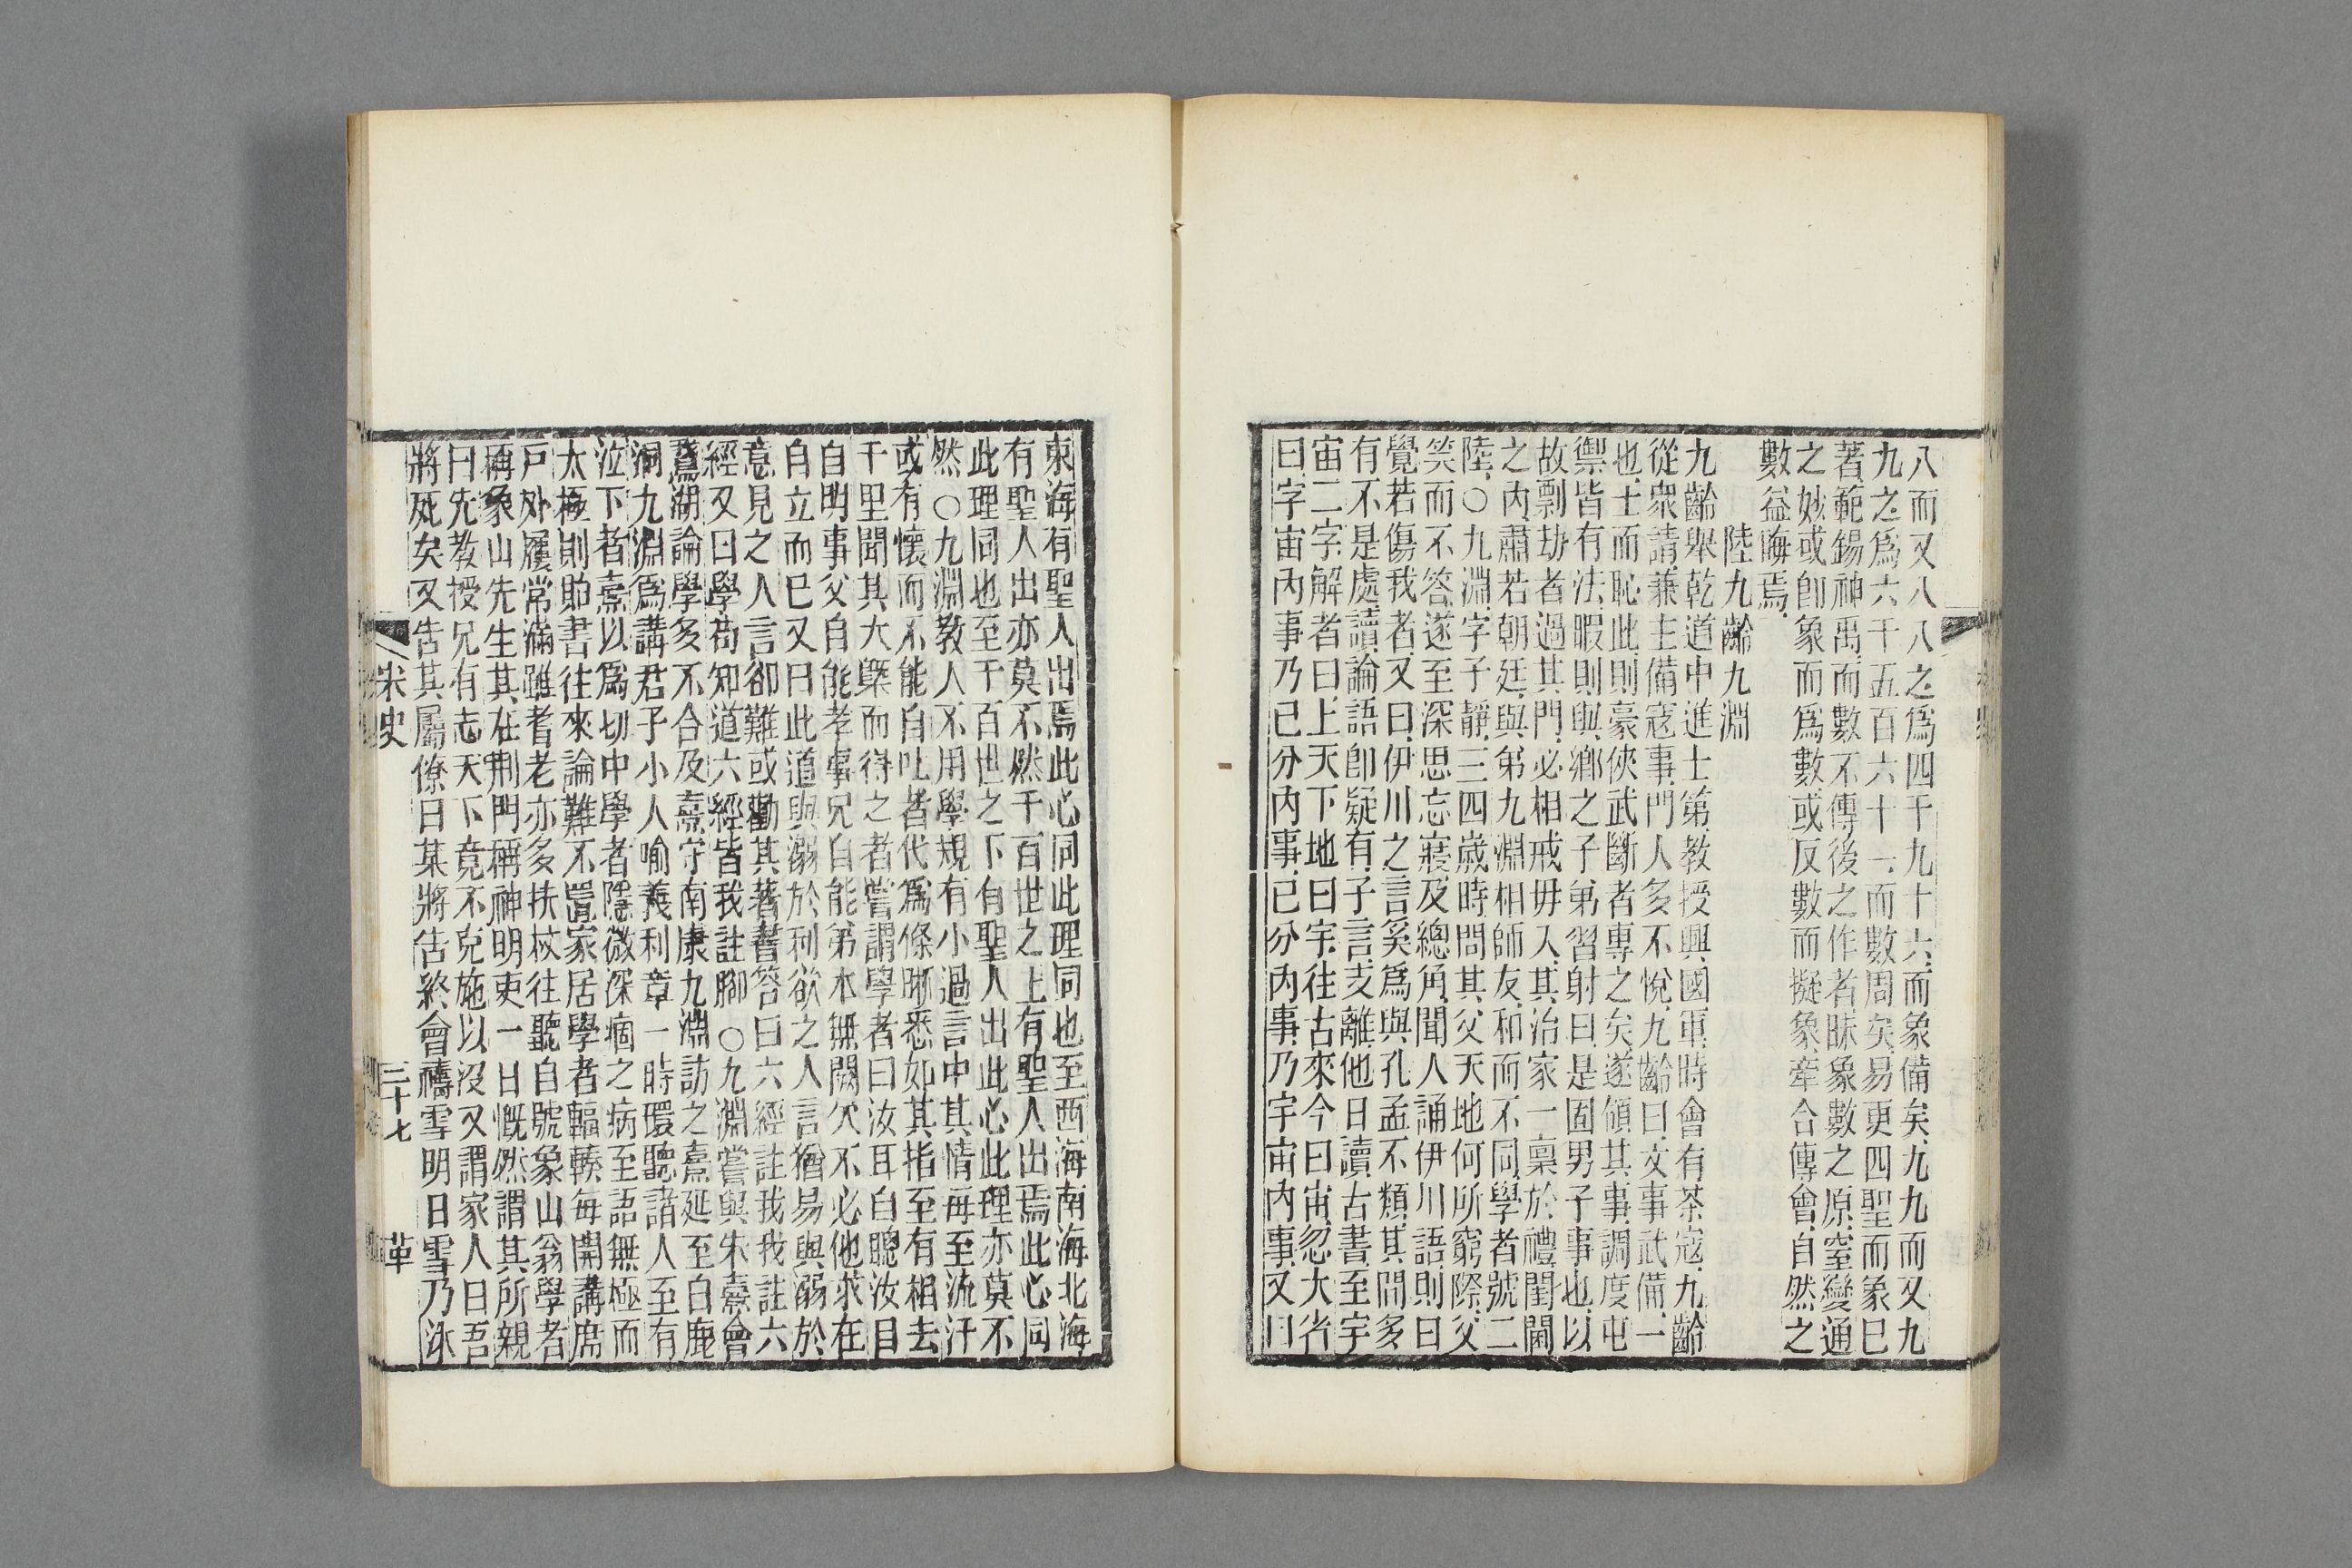 八而又八八之爲四千九十六而象備矣九九而又九
九之爲六千五百六十一而數周矣易更四聖而象已
著範錫神禹而數不傳後之作者昧象數之原窒變通
之妙或卽象而爲數或反數而擬象牽合傅會自然之
數益晦焉
陸九齡九淵
九齡舉乾道中進士第教授興國軍時會有茶寇九齡
從衆請兼主備寇事門人多不悅九齡曰文事武備一
也士而恥此則豪俠武斷者專之矣遂傾其事調度屯
禦皆有法暇則與鄉之子弟習射曰是固男子事也以
故剽劫者過其門必相戒毋入其治家一稟於禮閨閫
之內肅若朝廷與弟九淵相師友和而不同學者號二
陸○九淵字子靜三四歲時問其父天地何所窮際父
笑而不答遂至深思忘寢及總角聞人誦伊川語則曰
覺若傷我者又曰伊川之言奚爲與孔孟不類其間多
有不是處讀論語卽疑有子言支離他日讀古書至宇
宙二字解者曰上天下地曰宇往古來今曰宙忽大省
曰宇宙內事乃己分內事己分內事乃宇宙內事又曰
東海有聖人出焉此心同此理同也至西海南海北海
有聖人出亦莫不然千百世之上有聖人出焉此心同
此理同也至千百世之下有聖人出此心此理亦莫不
然○九淵教人不用學規有小過言中其情毎至流汗
或有懷而不能自吐者代爲條晰悉如其指至有相去
千里聞其大槩而得之者嘗謂學者曰汝耳自聰汝目
自明事父自能孝事兄自能弟本無闕欠不必他求在
自立而已又曰此道與溺於利欲之人言猶易與溺於
意見之人言卻難或勸其著書答曰六經註我我註六
經又曰學苟知道六經皆我註腳○九淵嘗與朱熹會
鵞湖論學多不合及熹守南康九淵訪之熹延至白鹿
洞九淵爲講君子小人喻義利章一時環聽諸人至有
泣下者熹以爲切中學者隱微深痼之病至語無極而
太極則貽書往來論難不置家居學者輻輳毎開講席
戸外屨常滿雖耆老亦多扶杖往聽自號象山翁學者
稱象山先生其在荆門稱神明吏一日慨然謂其所親
曰先教授兄有志天下竟不克施以沒又謂家人曰吾
將死矣又告其屬僚曰某將告終會禱雪明日雪乃沐
宋史
三十七
革